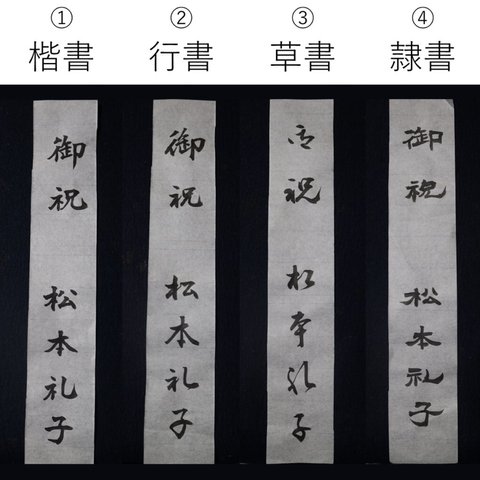 ① ② ③ ④
楷書 行書 草書 隷書
御祝
松本礼子
御祝
松本礼子
御祝
松本礼子
御祝
松本礼子